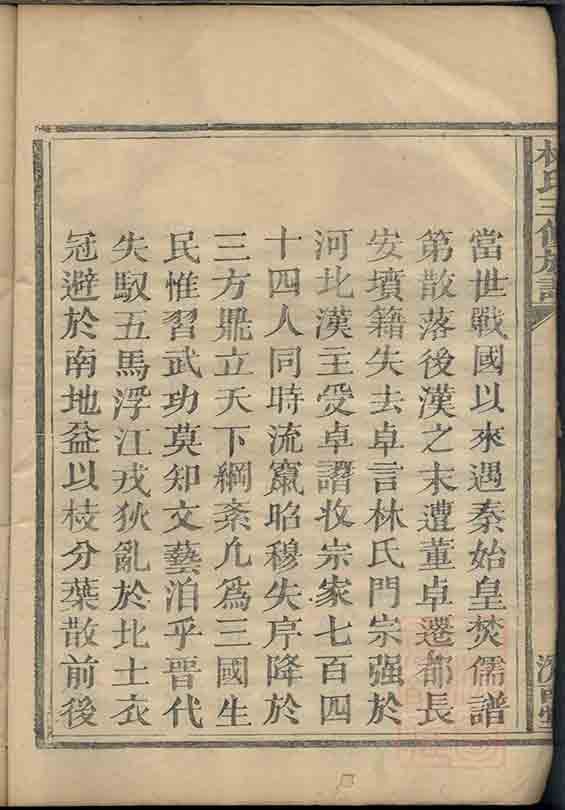 林氏三修族譜
當世戰國以來遇秦始皇焚儒譜
第散落後漢之末遭董卓遷都長
安墳籍失去卓言林氏門宗强於
河北漢王受卓譖收宗家七百四
十四人同時流竄昭穆失序降於
三方鼎立天下綱紊凢爲三國生
民惟習武功莫知文藝泊乎晋代
失馭五馬浮江戎狄亂於北土衣
冠避於南地益以枝分葉散前後